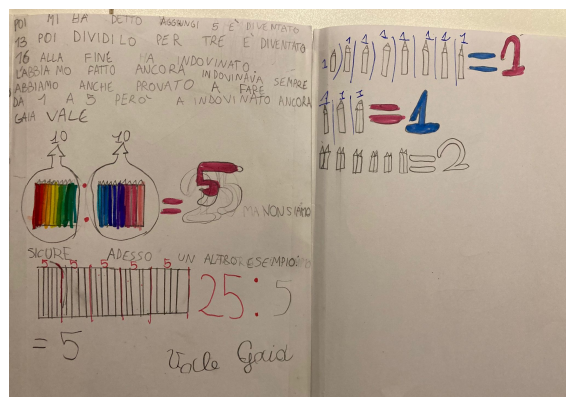 POI MI HA DETTO AGGIUNGI 5 E È DIVENTATO
13 POI DIVIDILO PER TRE E DIVENTATO
16 ALLA FINE HA INDOVINATO.
L'ABBIAMO FATTO ANCORA INDOVINAVA SEMPRE
ABBIAMO ANCHE PROVATO A FARE
DA 1 A 5 PERO' A INDOVINATO ANCORA
GAIA VALE
10 10
: = 5
MA NON SIAMO
SICURE ADESSO UN ALTRO ESEMPIO
5 5 5 5 5
25:5
= 5
Vale Gaia
1 1 1 1 1 1 1 1 = 1
1 1 1 = 1
= 2